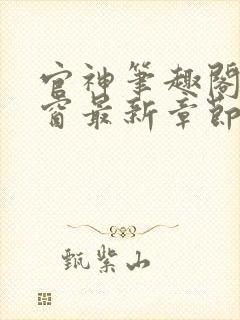 官神筆趣閣
窗最新章節
甄紫山